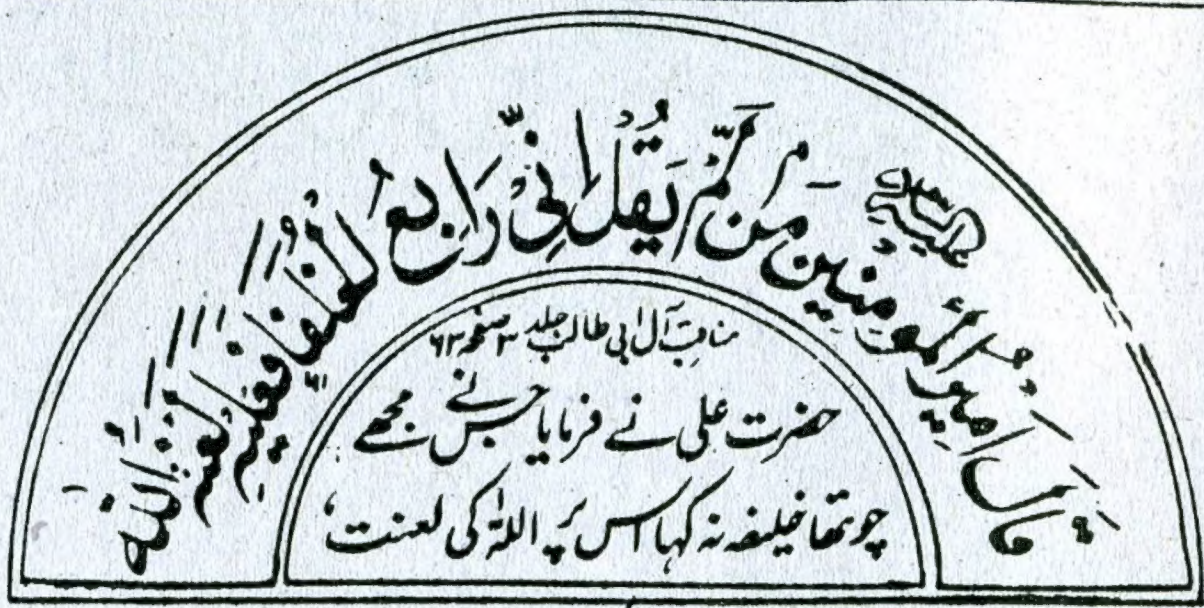 قَالَ اَمِیْرُ الْمُؤْمِنِیْنَ عَلَیْہِ السَّلَام مَنْ لَّمْ یَقُلْ اِنِّیْ رَابِعُ الْخُلَفَاءِ فَعَلَیْہِ لَعْنَۃُ اللّٰہِ
مناقب آل ابی طالب جلد ۳ صفحہ ۶۳
حضرت علی نے فرمایا جس نے مجھے
چوتھا خلیفہ نہ کہا اس پر اللہ کی لعنت،